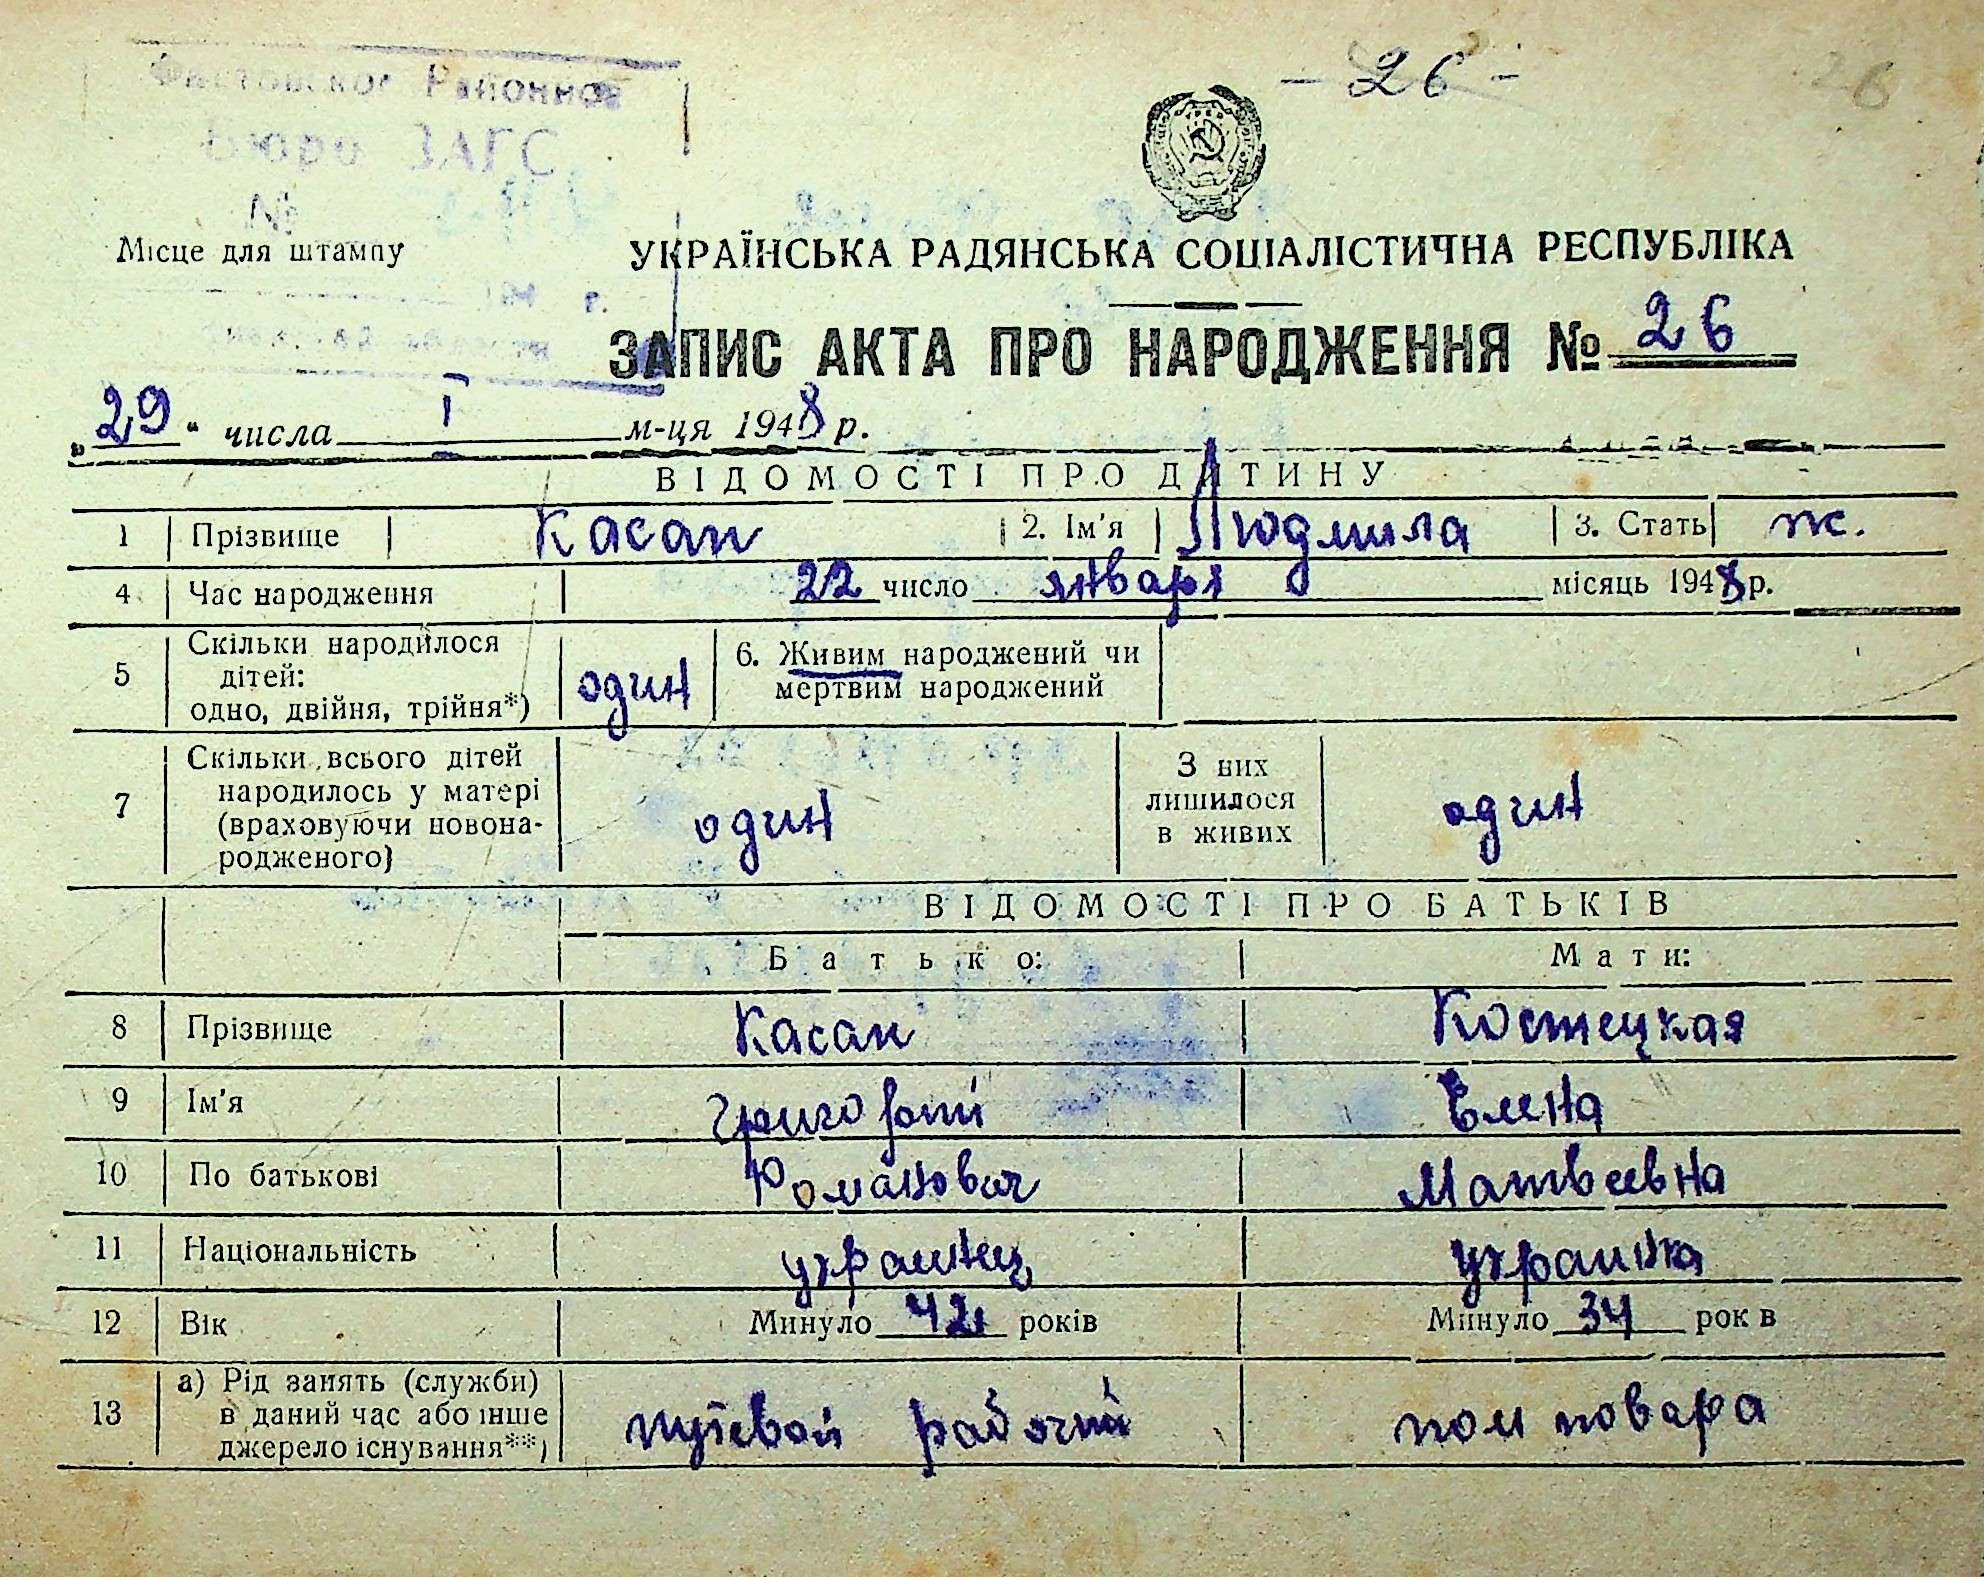 - 26 -
26
Районное
Бюро ЗАГС
№
УРСР
Місце для штампу
УКРАЇНСЬКА РАДЯНСЬКА СОЦІАЛІСТИЧНА РЕСПУБЛІКА
г.
ЗАПИС АКТА ПРО НАРОДЖЕННЯ № 26
„29“ числа I м-ця 1948 р.
ВІДОМОСТІ ПРО ДИТИНУ
1 Прізвище Касан 2. Ім'я Людмила 3. Стать ж.
4 Час народження 22 число января місяць 1948 р.
5 Скільки народилося дітей: одно, двійня, трійня*) один 6. Живим народжений чи мертвим народжений
7 Скільки всього дітей народилось у матері (враховуючи новонародженого) один З них лишилося в живих один
ВІДОМОСТІ ПРО БАТЬКІВ
Батько: Мати:
8 Прізвище Касан Костецкая
9 Ім'я Григорий Елена
10 По батькові Романович Матвеевна
11 Національність украинец украинка
12 Вік Минуло 42 років Минуло 34 рок в
13 а) Рід занять (служби) в даний час або інше джерело існування**) путевой рабочий пом повара